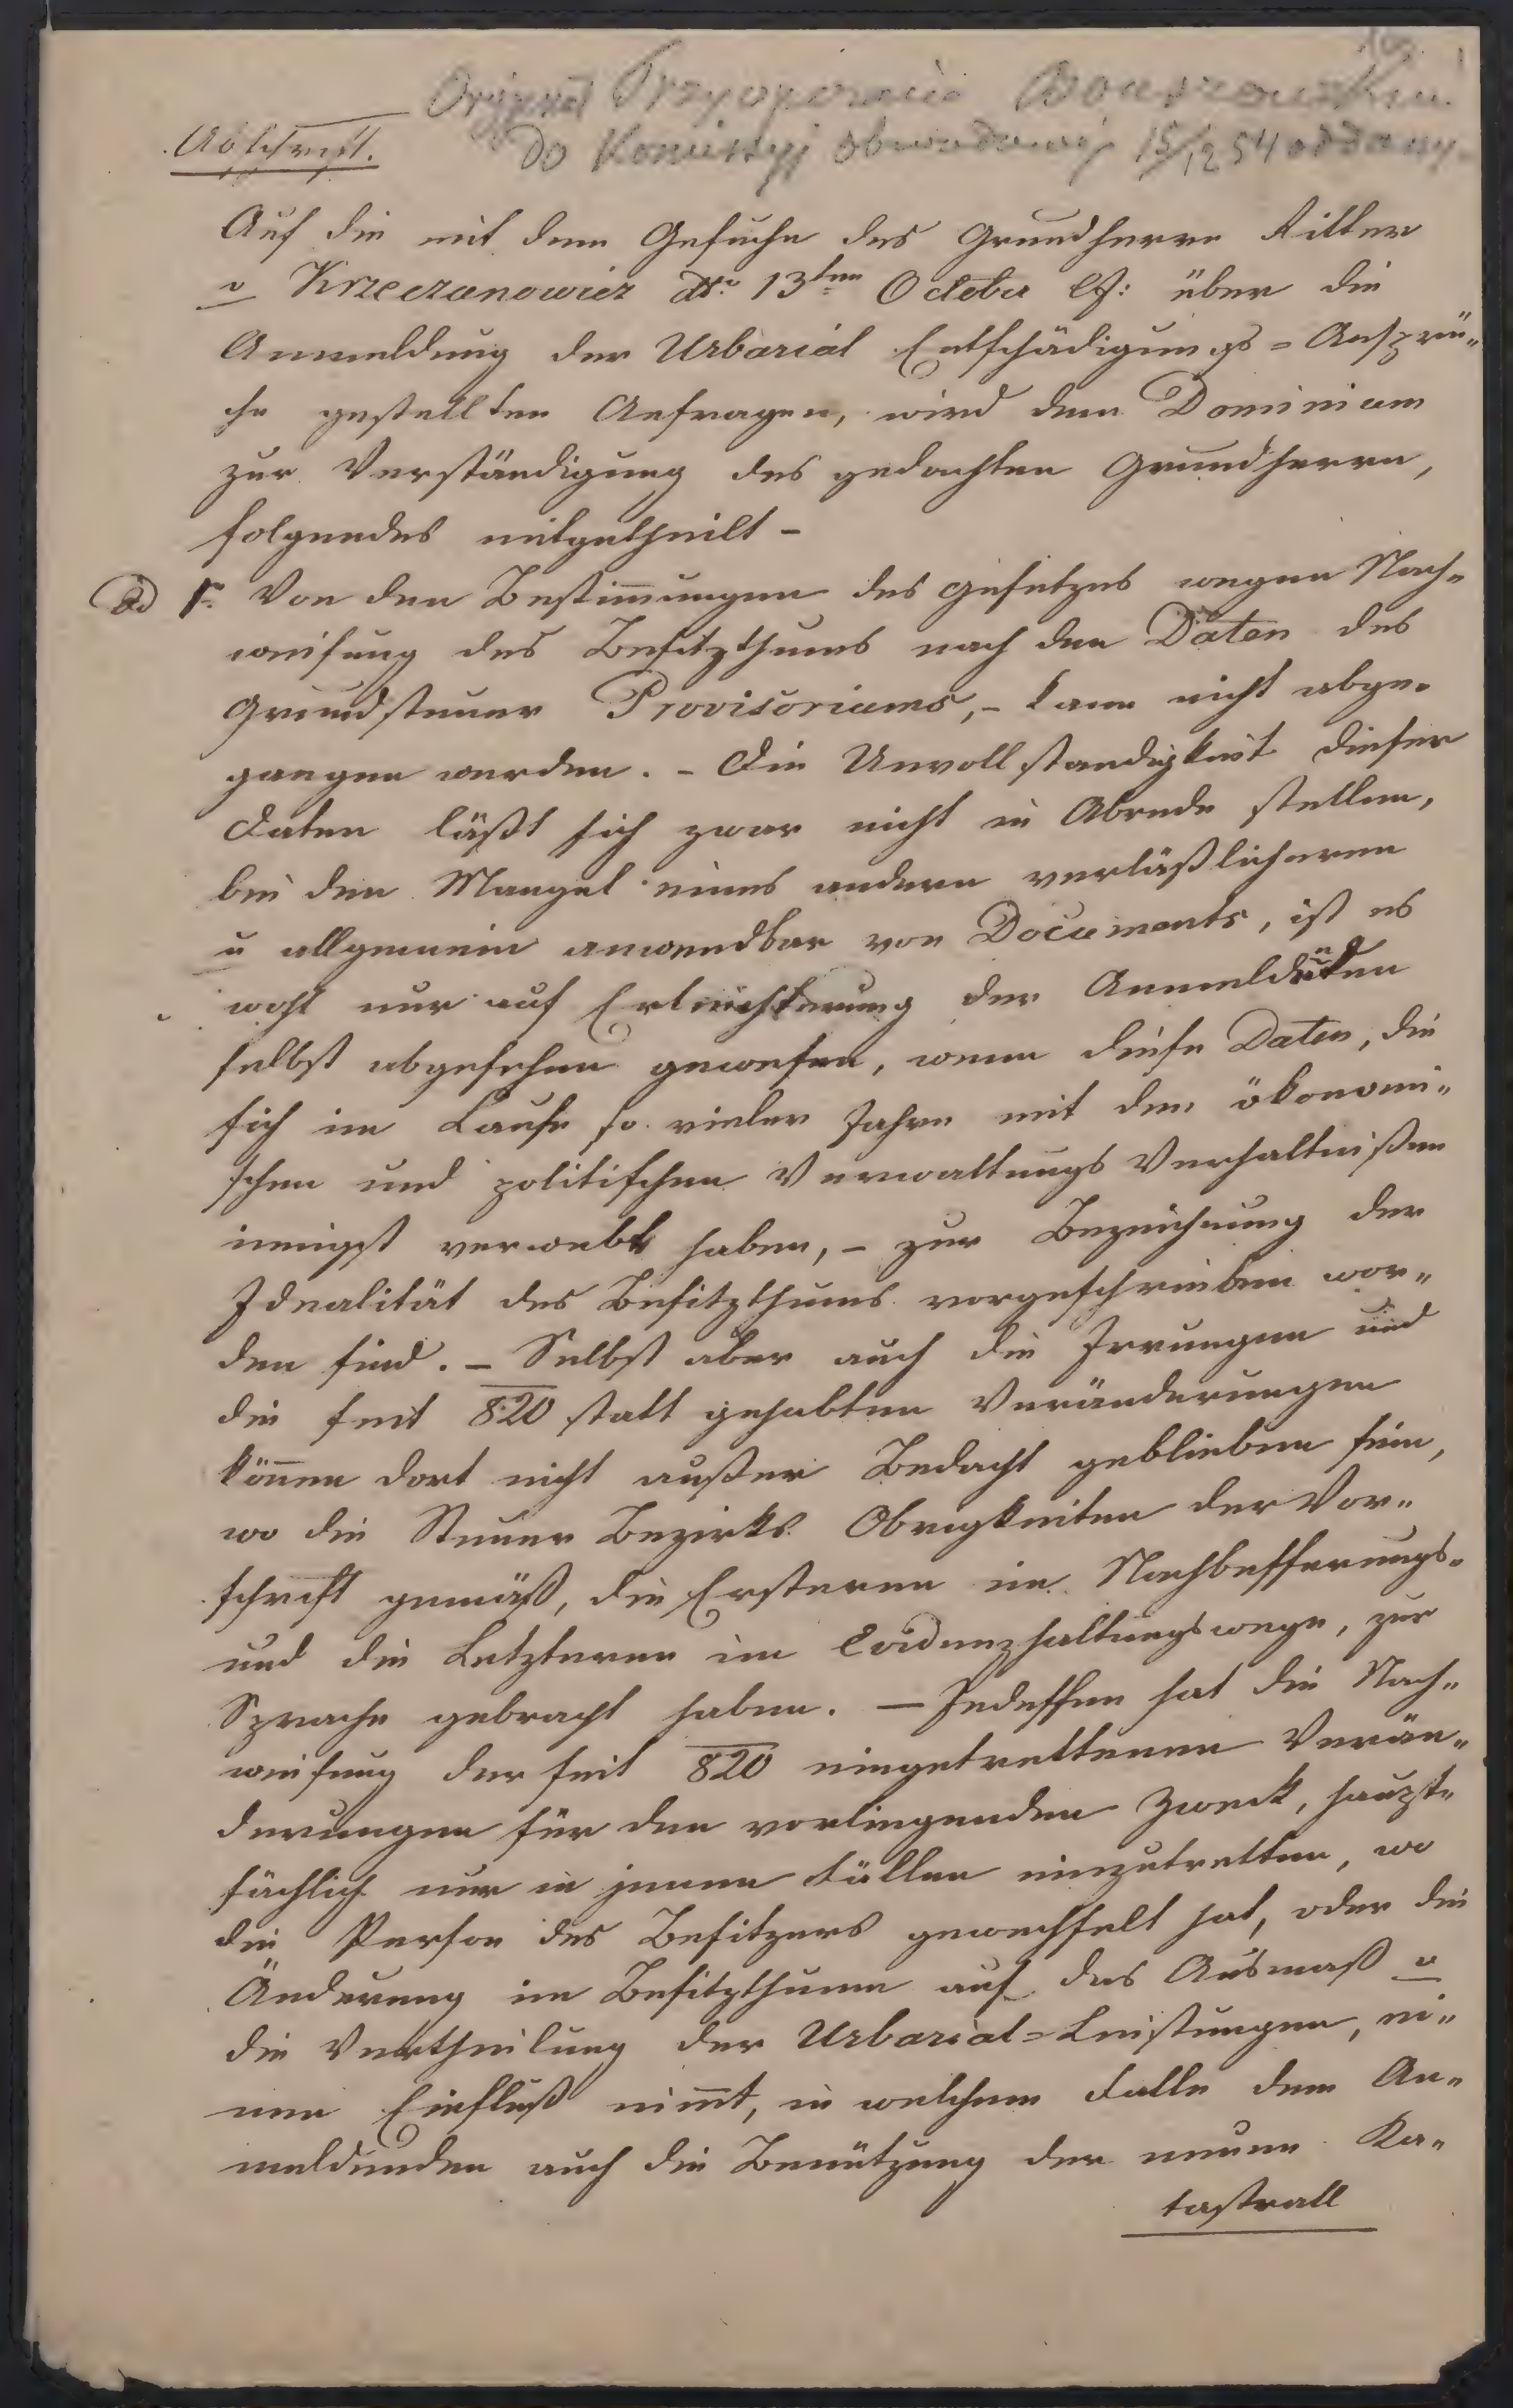 Orygynał
do Komissyj obwodowej 15/12 54 oddany
Abschrift.
Auf die mit dem Gesuche des Grundherrn Ritter
v Krzeczunowicz dto 13ten October lJ: über die
Anmeldung der Urbarial Entschädigungs=Ansprü„
che gestellten Anfragen, wird dem Dominium
zur Verständigung des gedachten Grundherrn,
folgendes mitgetheilt –
Ad 1. Von den Bestim̄ungen des Gesetzes wegen Nach„
weisung des Besitzthums nach den Daten des
Grundsteuer Provisoriums, – kann nicht abge„
gangen werden. – Die Unvollstandigkeit dieser
Daten läßt sich zwar nicht in Abrede stellen,
bei den Mangel eines andern verläßlicheren
u allgemein anwendbar von Documents, ist es
wohl nur auf Erleichterung der Anmeldenden
selbst abgesehen gewesen, wenn diese Daten, die
sich im Laufe so vieler Jahre mit den ökonomi„
schen und politischen Verwaltungs Verhaltnißen
innigst verwebt haben, – zur Bezeichnung der
Idealität des Besitzthums vorgeschrieben wor„
den sind. – Selbst aber auch die Irrungen und
die seit 820 statt gehabten Veränderungen
kön̄en dort nicht außer Bedacht geblieben sein,
wo die Steuer Bezirks Obrigkeiten der Vor„
schrift gemäß, die Ersteren im Nachbesserungs„
und die Letzteren im Evidenzhaltungswege, zur
Sprache gebracht haben. – Indessen hat die Nach„
weisung der seit 820 eingetrettenen Verän„
derungen für den vorliegenden Zweck, haupt„
sächlich nur in jenen Fällen einzutretten, wo
die Person des Besitzers gewechselt hat, oder die
Änderung im Besitzthume auf das Ausmaß u
die Vertheilung der Urbarial=Leistungen, ei„
nen Einfluß nim̄t, in welchem Falle dem An„
meldenden auch die Benützung der neuen Ka„
tastrall